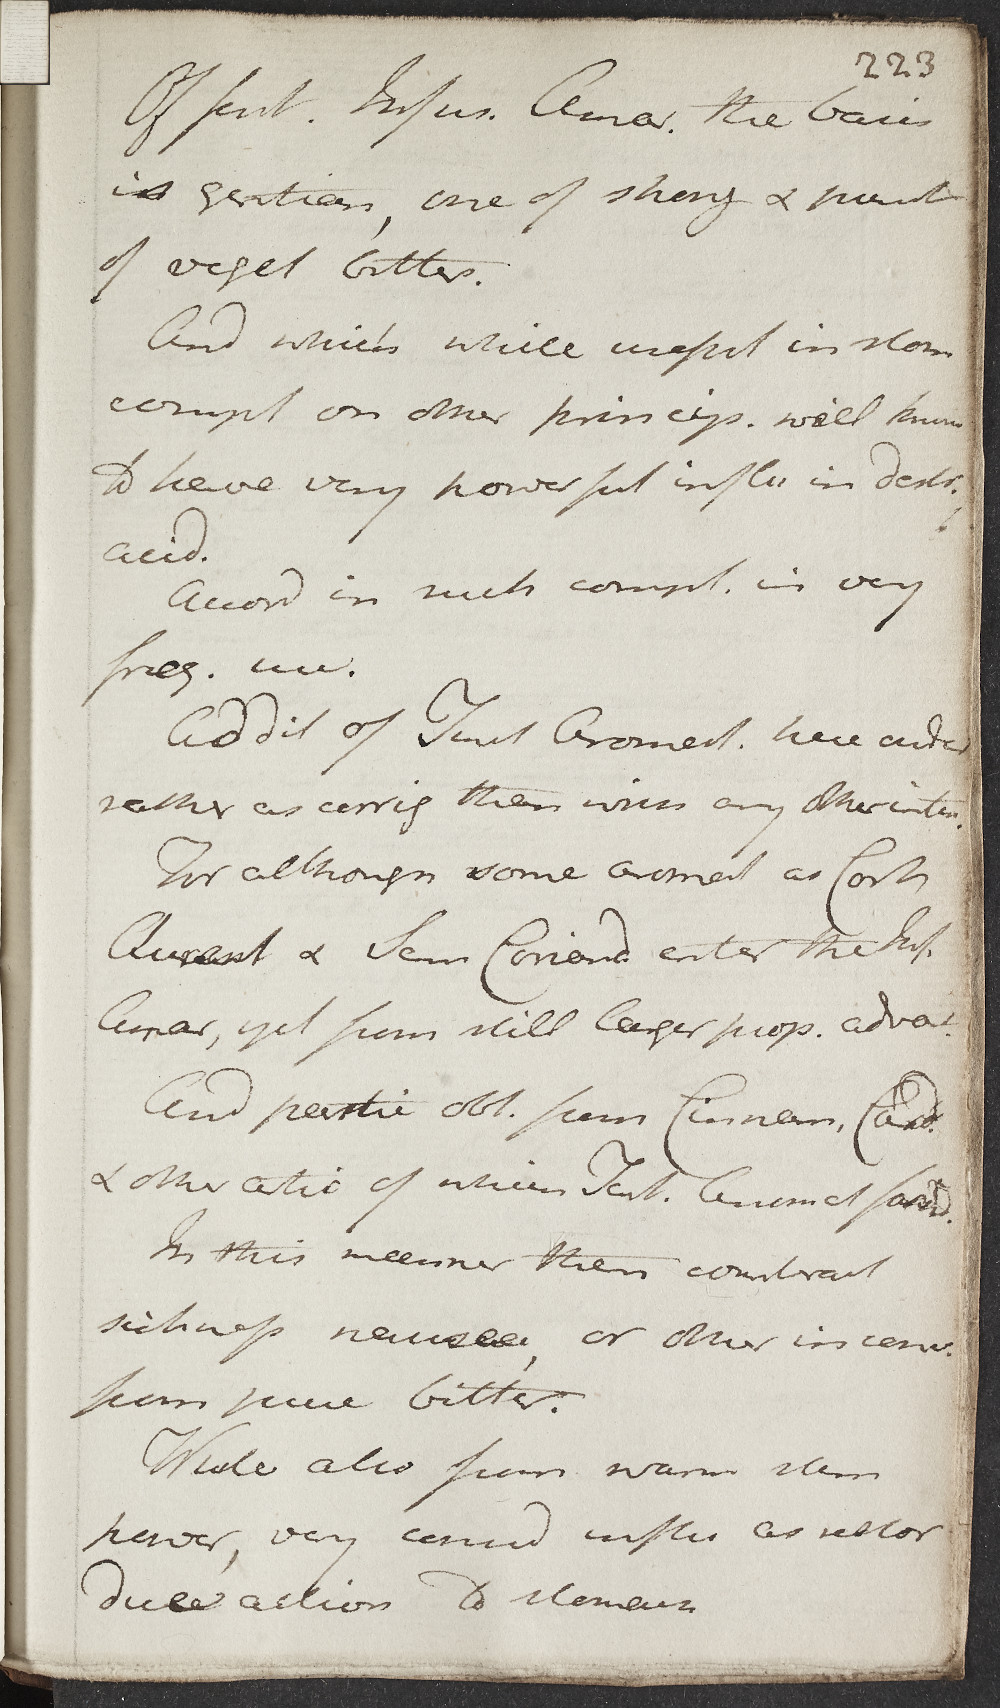 223
Of first. Infus. Amar. the basis
is gentian, one of strong & purest
of veget bitters.
And which while useful in stom
compl on other princip. well known
to have very powerful influ in destr.
acid.
Accord in such compl. in very
freq. use.
Addit of Tinct Aromat. here
rather as corrig then with any other inten.
For although some aromat as Cort
Aurant & Sem Coriand enter the Inf.
Amar, yet from still larger prop. advan.
And partic obt. from Cinnam, Card.
& other artic of which Tinct. Aromat form'd.
In this manner then counteract
sickness nausea, or other inconv.
from pure bitter.
While also from warm stim
power, very consid influ as restor
due action to stomach